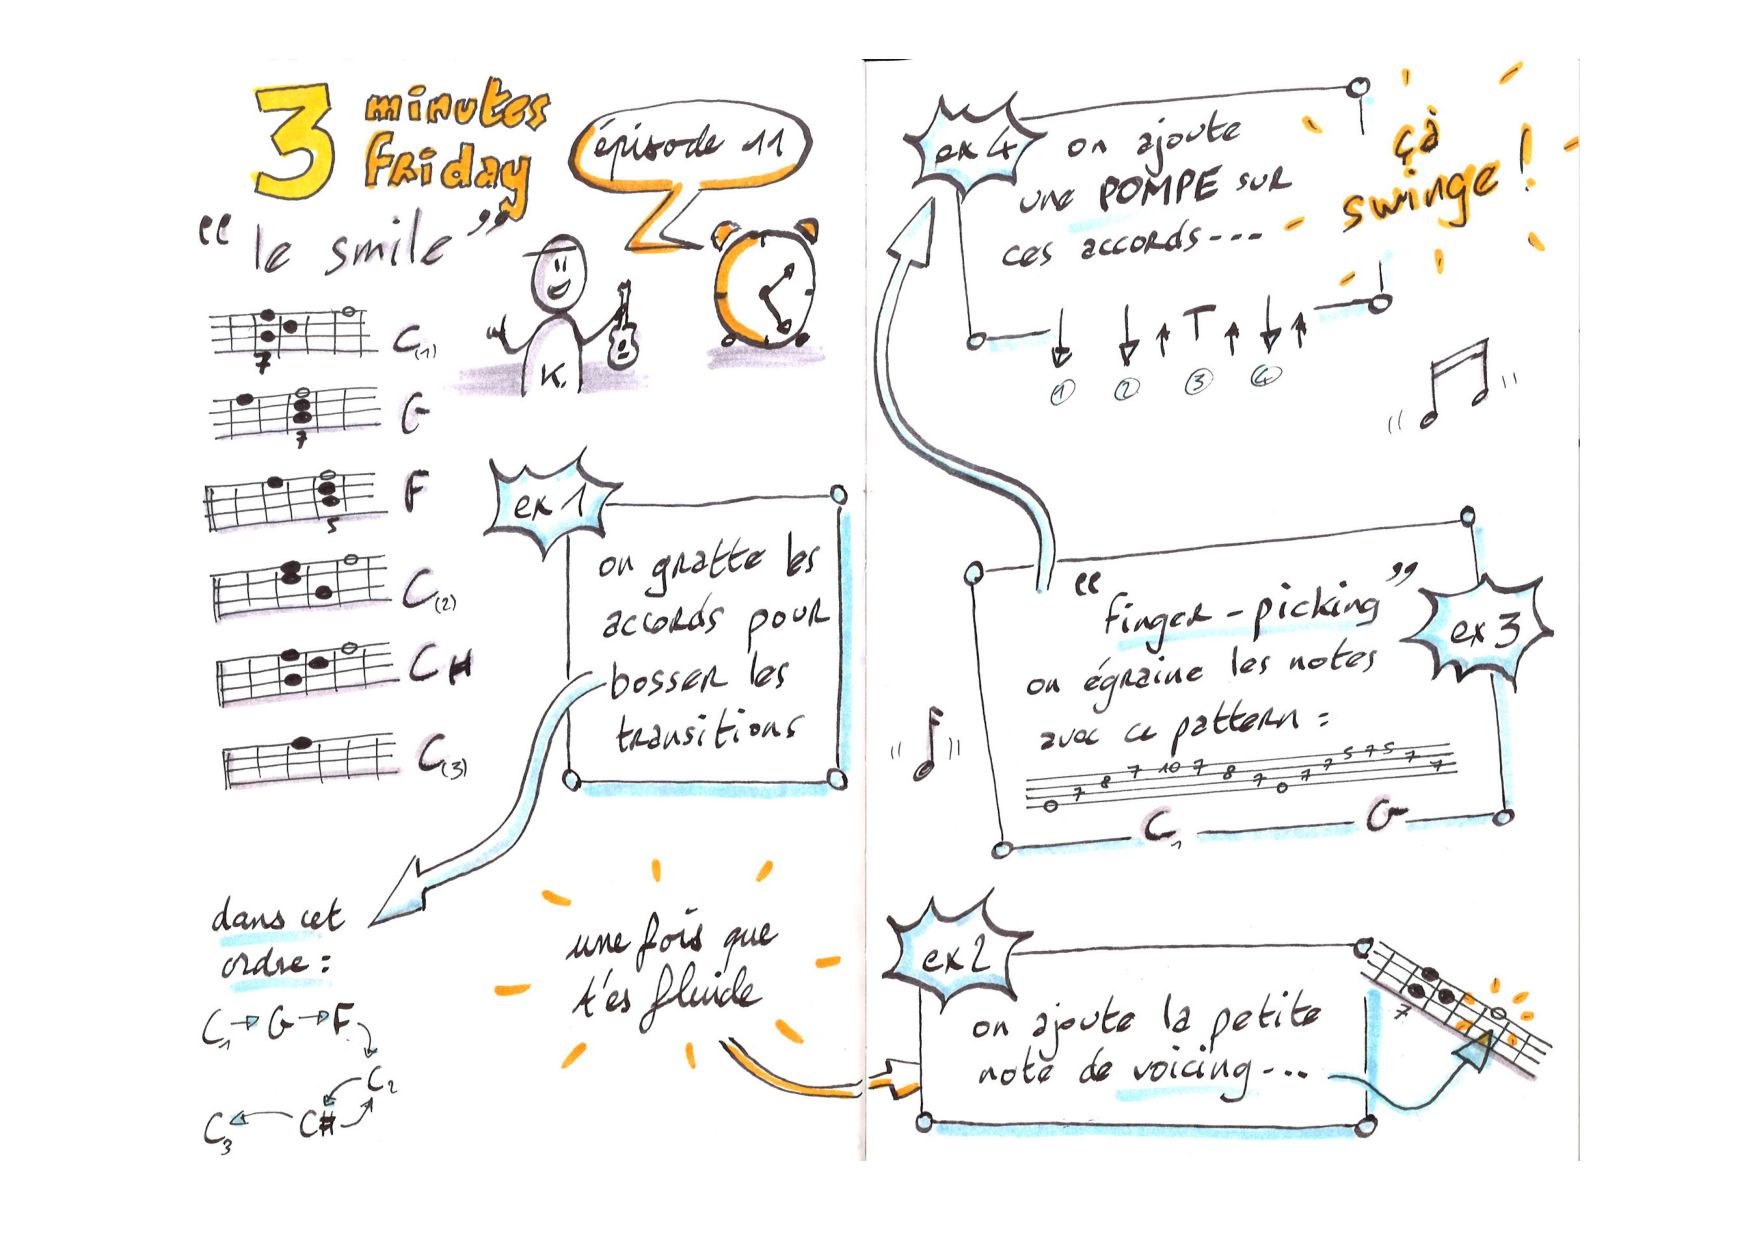 3 minutes
Friday
épisode 11
“le smile”
7
C(1)
7
G
5
F
C(2)
C#
C(3)
K.
ex 1
on gratte les
accords pour
bosser les
transitions
dans cet
ordre :
C1 → G → F
C2
C3 ← C#
une fois que
t'es fluide
ex 2
on ajoute la petite
note de voicing...
7
ex 3
“finger-picking”
on égraine les notes
avec ce pattern :
0 7 8 7 10 7 8 7 0 7 7 5 7 5 7 7
C1 G
ex 4
on ajoute
une POMPE sur
ces accords...
T
1 2 3 4
çà
swinge !